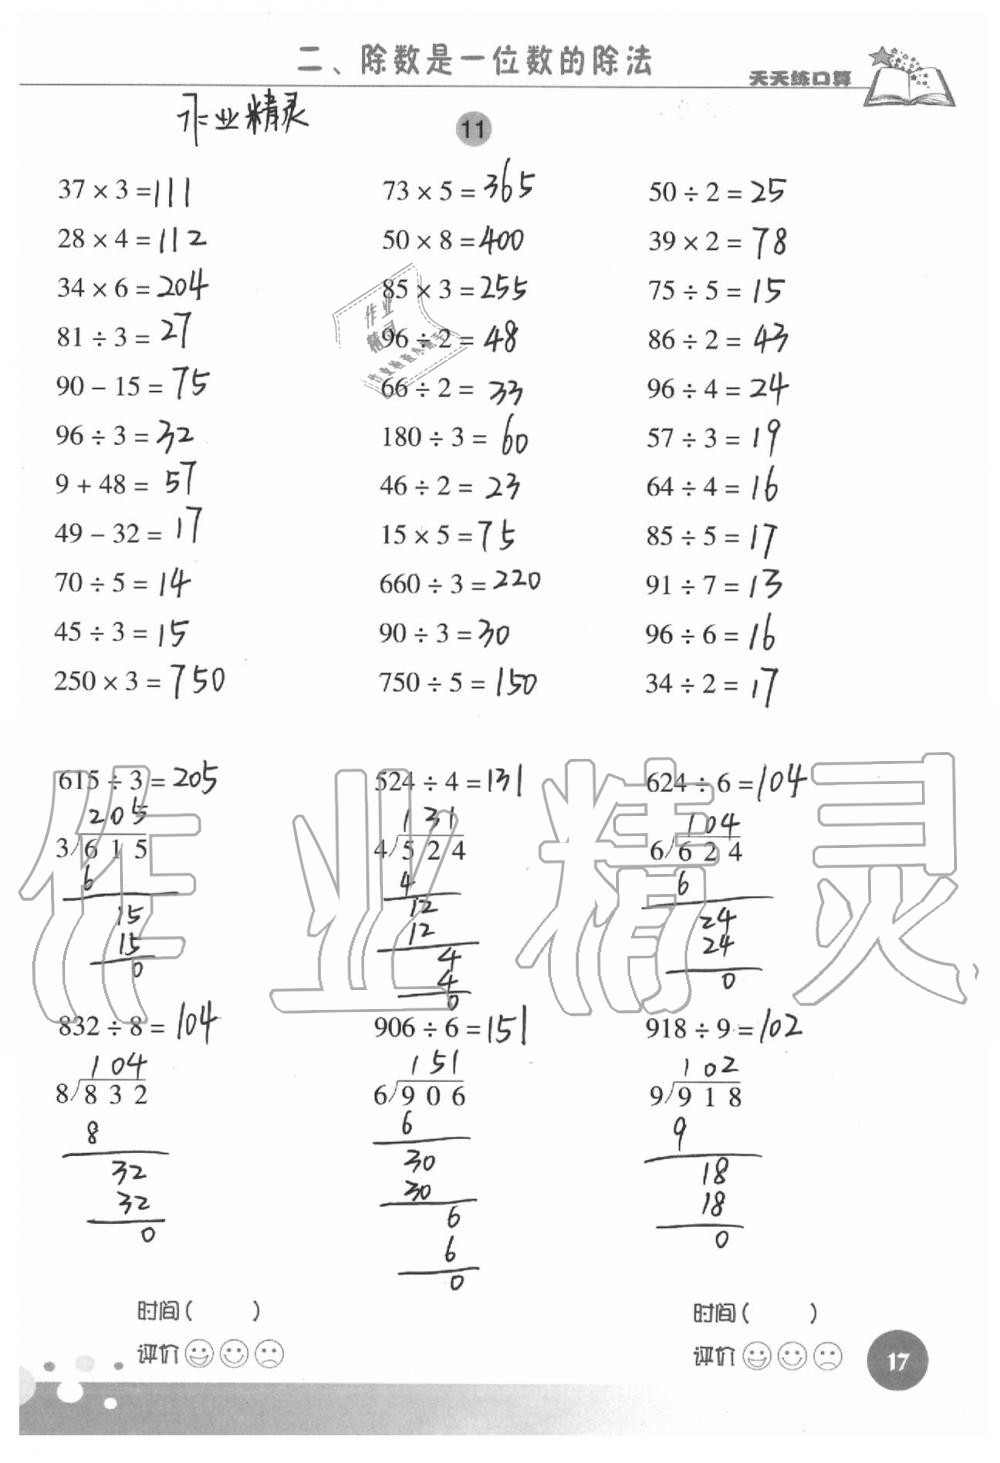 二、除数是一位数的除法
天天练口算
作业精灵
11
37 × 3 = 111
73 × 5 = 365
50 ÷ 2 = 25
28 × 4 = 112
50 × 8 = 400
39 × 2 = 78
34 × 6 = 204
85 × 3 = 255
75 ÷ 5 = 15
81 ÷ 3 = 27
96 ÷ 2 = 48
86 ÷ 2 = 43
90 − 15 = 75
66 ÷ 2 = 33
96 ÷ 4 = 24
96 ÷ 3 = 32
180 ÷ 3 = 60
57 ÷ 3 = 19
9 + 48 = 57
46 ÷ 2 = 23
64 ÷ 4 = 16
49 − 32 = 17
15 × 5 = 75
85 ÷ 5 = 17
70 ÷ 5 = 14
660 ÷ 3 = 220
91 ÷ 7 = 13
45 ÷ 3 = 15
90 ÷ 3 = 30
96 ÷ 6 = 16
250 × 3 = 750
750 ÷ 5 = 150
34 ÷ 2 = 17
作业
精灵
作业精灵
615 ÷ 3 = 205
205
3/6 1 5
6
15
15
0
524 ÷ 4 = 131
131
4/5 2 4
4
12
12
4
4
0
624 ÷ 6 = 104
104
6/6 2 4
6
24
24
0
832 ÷ 8 = 104
104
8/8 3 2
8
32
32
0
906 ÷ 6 = 151
151
6/9 0 6
6
30
30
6
6
0
918 ÷ 9 = 102
102
9/9 1 8
9
18
18
0
时间( )
时间( )
评价
评价
17